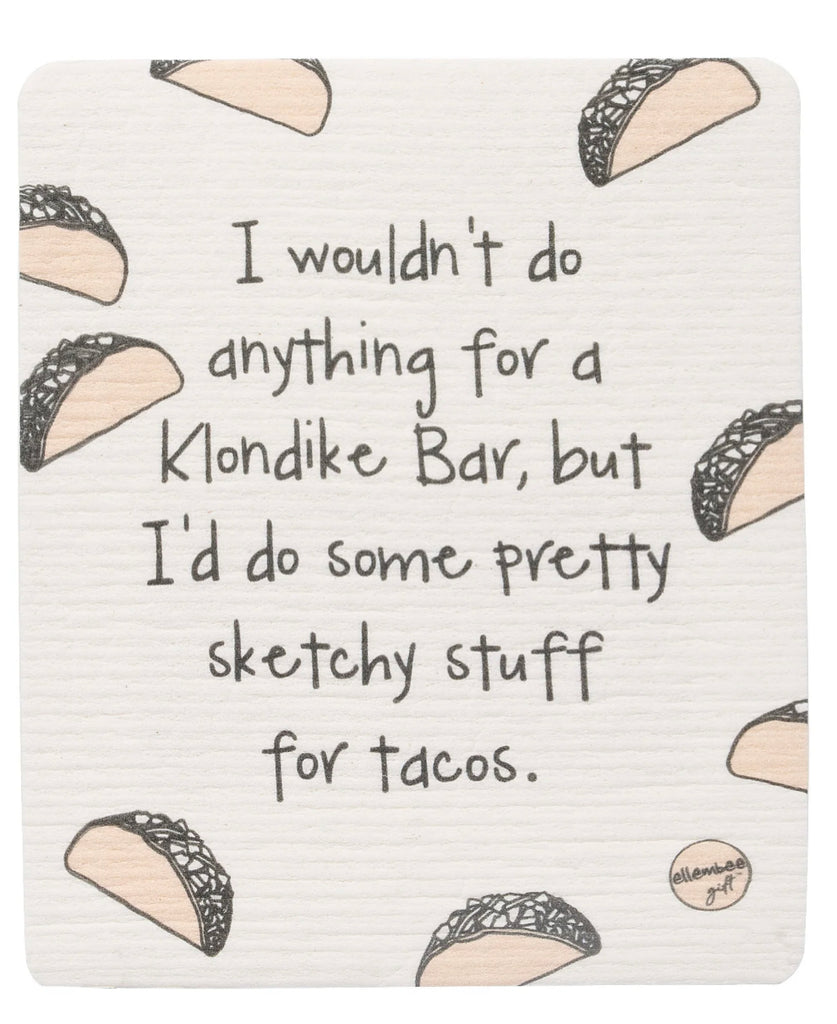 I wouldn't do
anything for a
Klondike Bar, but
I'd do some pretty
sketchy stuff
for tacos.
ellembee
gift